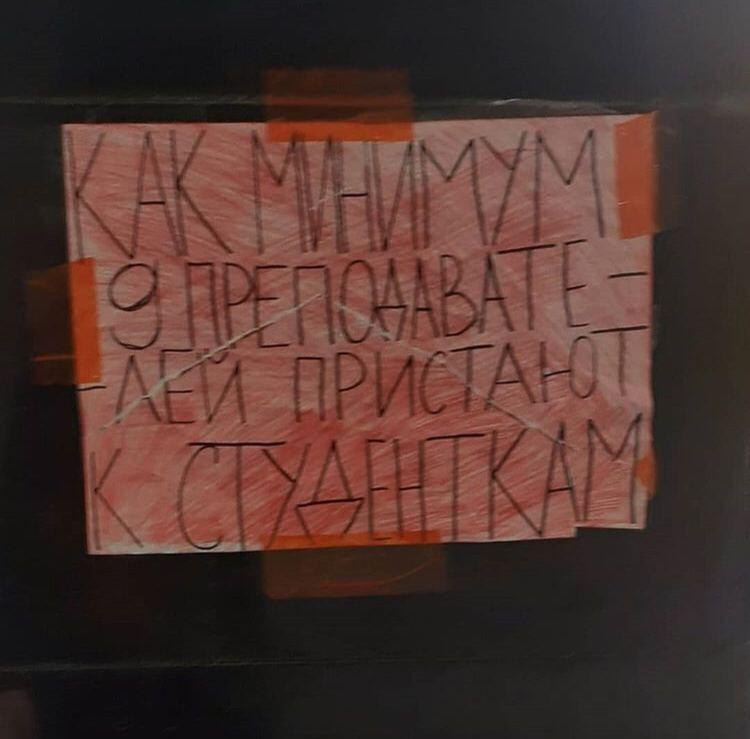 КАК МИНИМУМ
9 ПРЕПОДАВАТЕ-
-ЛЕЙ ПРИСТАЮТ
К СТУДЕНТКАМ